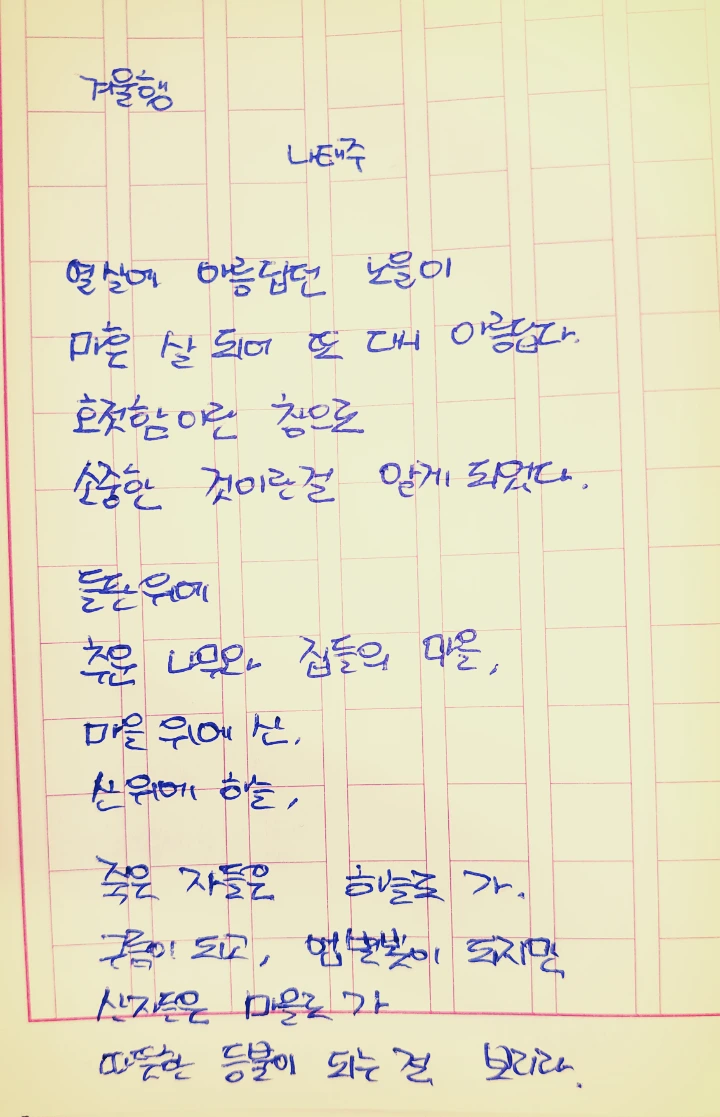 겨울행
나태주
열살에 아름답던 노을이
마흔 살 되어 또 다시 아름답다.
호젓함이란 참으로
소중한 것이란걸 알게 되었다.
들판위에
추운 나무와 집들의 마을,
마을 위에 산,
산위에 하늘,
죽은 자들은 하늘로 가.
구름이 되고, 언 별빛이 되지만
산자들은 마을로 가
따뜻한 등불이 되는 걸 보리라.